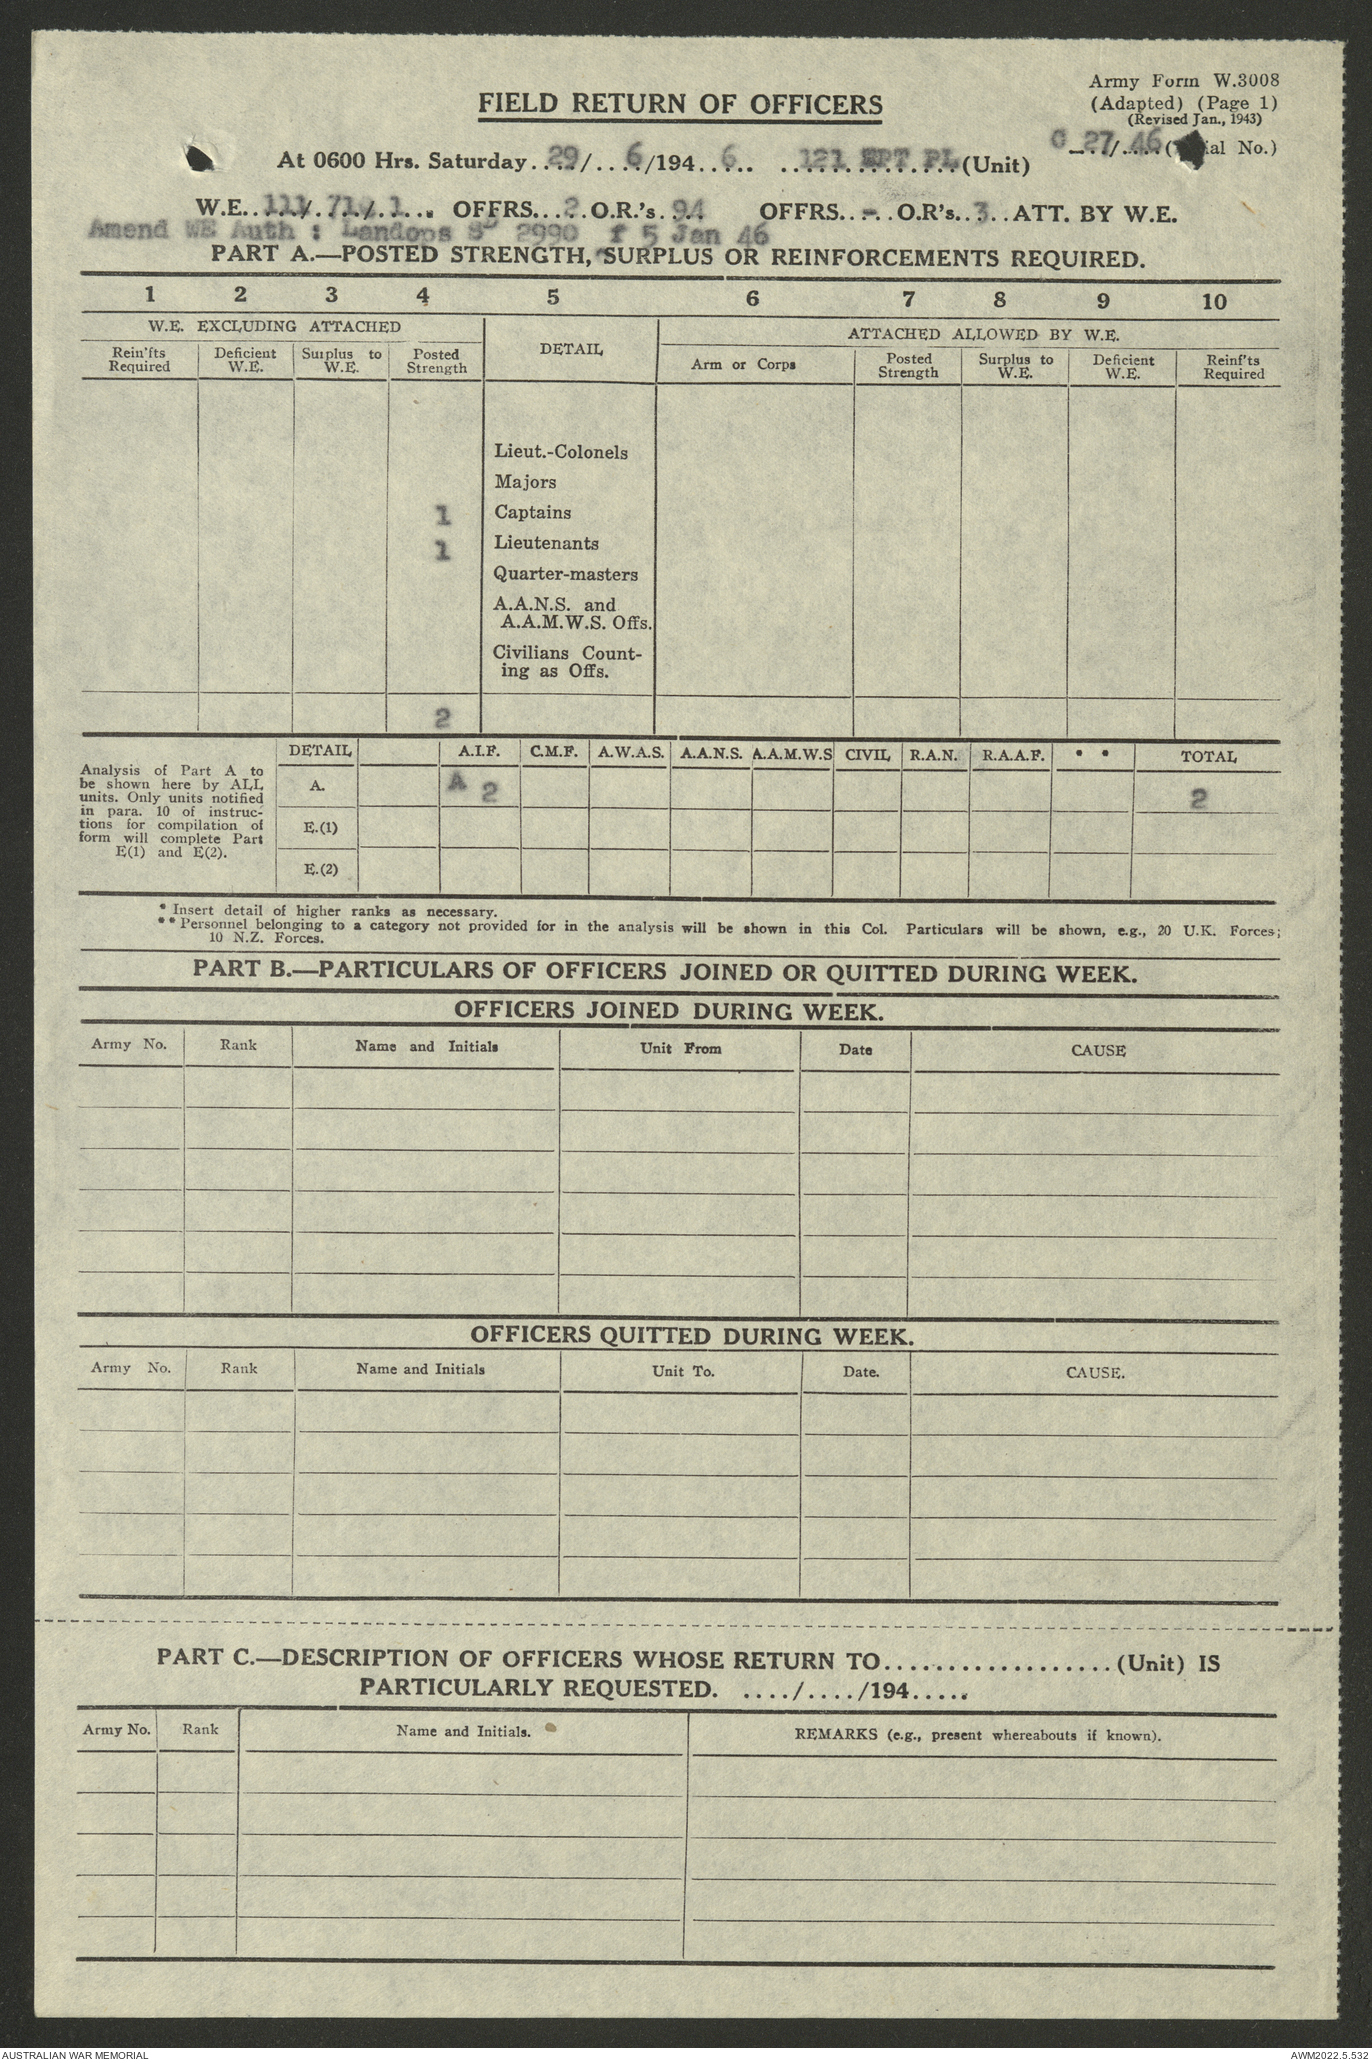 Army Form W.3008
FIELD RETURN OF OFFICERS
(Adapted) (Page 1)
(Revised Jan., 1943)
At 0600 Hrs. Saturday 29/ 6/194 6 121 SPT PL (Unit)
C 27/46 (ial No.)
W.E. 111/ 719/ 1 OFFRS. 2 O.R.'s 94 OFFRS. - O.R's 3 ATT. BY W.E.
Amend WE Auth : Landops SD 2990 f 5 Jan 46
PART A.—POSTED STRENGTH, SURPLUS OR REINFORCEMENTS REQUIRED.
1 2 3 4 5 6 7 8 9 10
W.E. EXCLUDING ATTACHED DETAIL ATTACHED ALLOWED BY W.E.
Rein'fts Required Deficient W.E. Surplus to W.E. Posted Strength Arm or Corps Posted Strength Surplus to W.E. Deficient W.E. Reinf'ts Required
Lieut.-Colonels
Majors
1 Captains
1 Lieutenants
Quarter-masters
A.A.N.S. and
A.A.M.W.S. Offs.
Civilians Count-
ing as Offs.
2
DETAIL A.I.F. C.M.F. A.W.A.S. A.A.N.S. A.A.M.W.S CIVIL R.A.N. R.A.A.F. * * TOTAL
Analysis of Part A to
be shown here by ALL
units. Only units notified
in para. 10 of instruc-
tions for compilation of
form will complete Part
E(1) and E(2).
A. A 2 2
E.(1)
E.(2)
* Insert detail of higher ranks as necessary.
** Personnel belonging to a category not provided for in the analysis will be shown in this Col. Particulars will be shown, e.g., 20 U.K. Forces;
10 N.Z. Forces.
PART B.—PARTICULARS OF OFFICERS JOINED OR QUITTED DURING WEEK.
OFFICERS JOINED DURING WEEK.
Army No. Rank Name and Initials Unit From Date CAUSE
OFFICERS QUITTED DURING WEEK.
Army No. Rank Name and Initials Unit To. Date. CAUSE.
PART C.—DESCRIPTION OF OFFICERS WHOSE RETURN TO...................(Unit) IS
PARTICULARLY REQUESTED. ..../..../194.....
Army No. Rank Name and Initials. REMARKS (e.g., present whereabouts if known).
AUSTRALIAN WAR MEMORIAL AWM2022.5.532